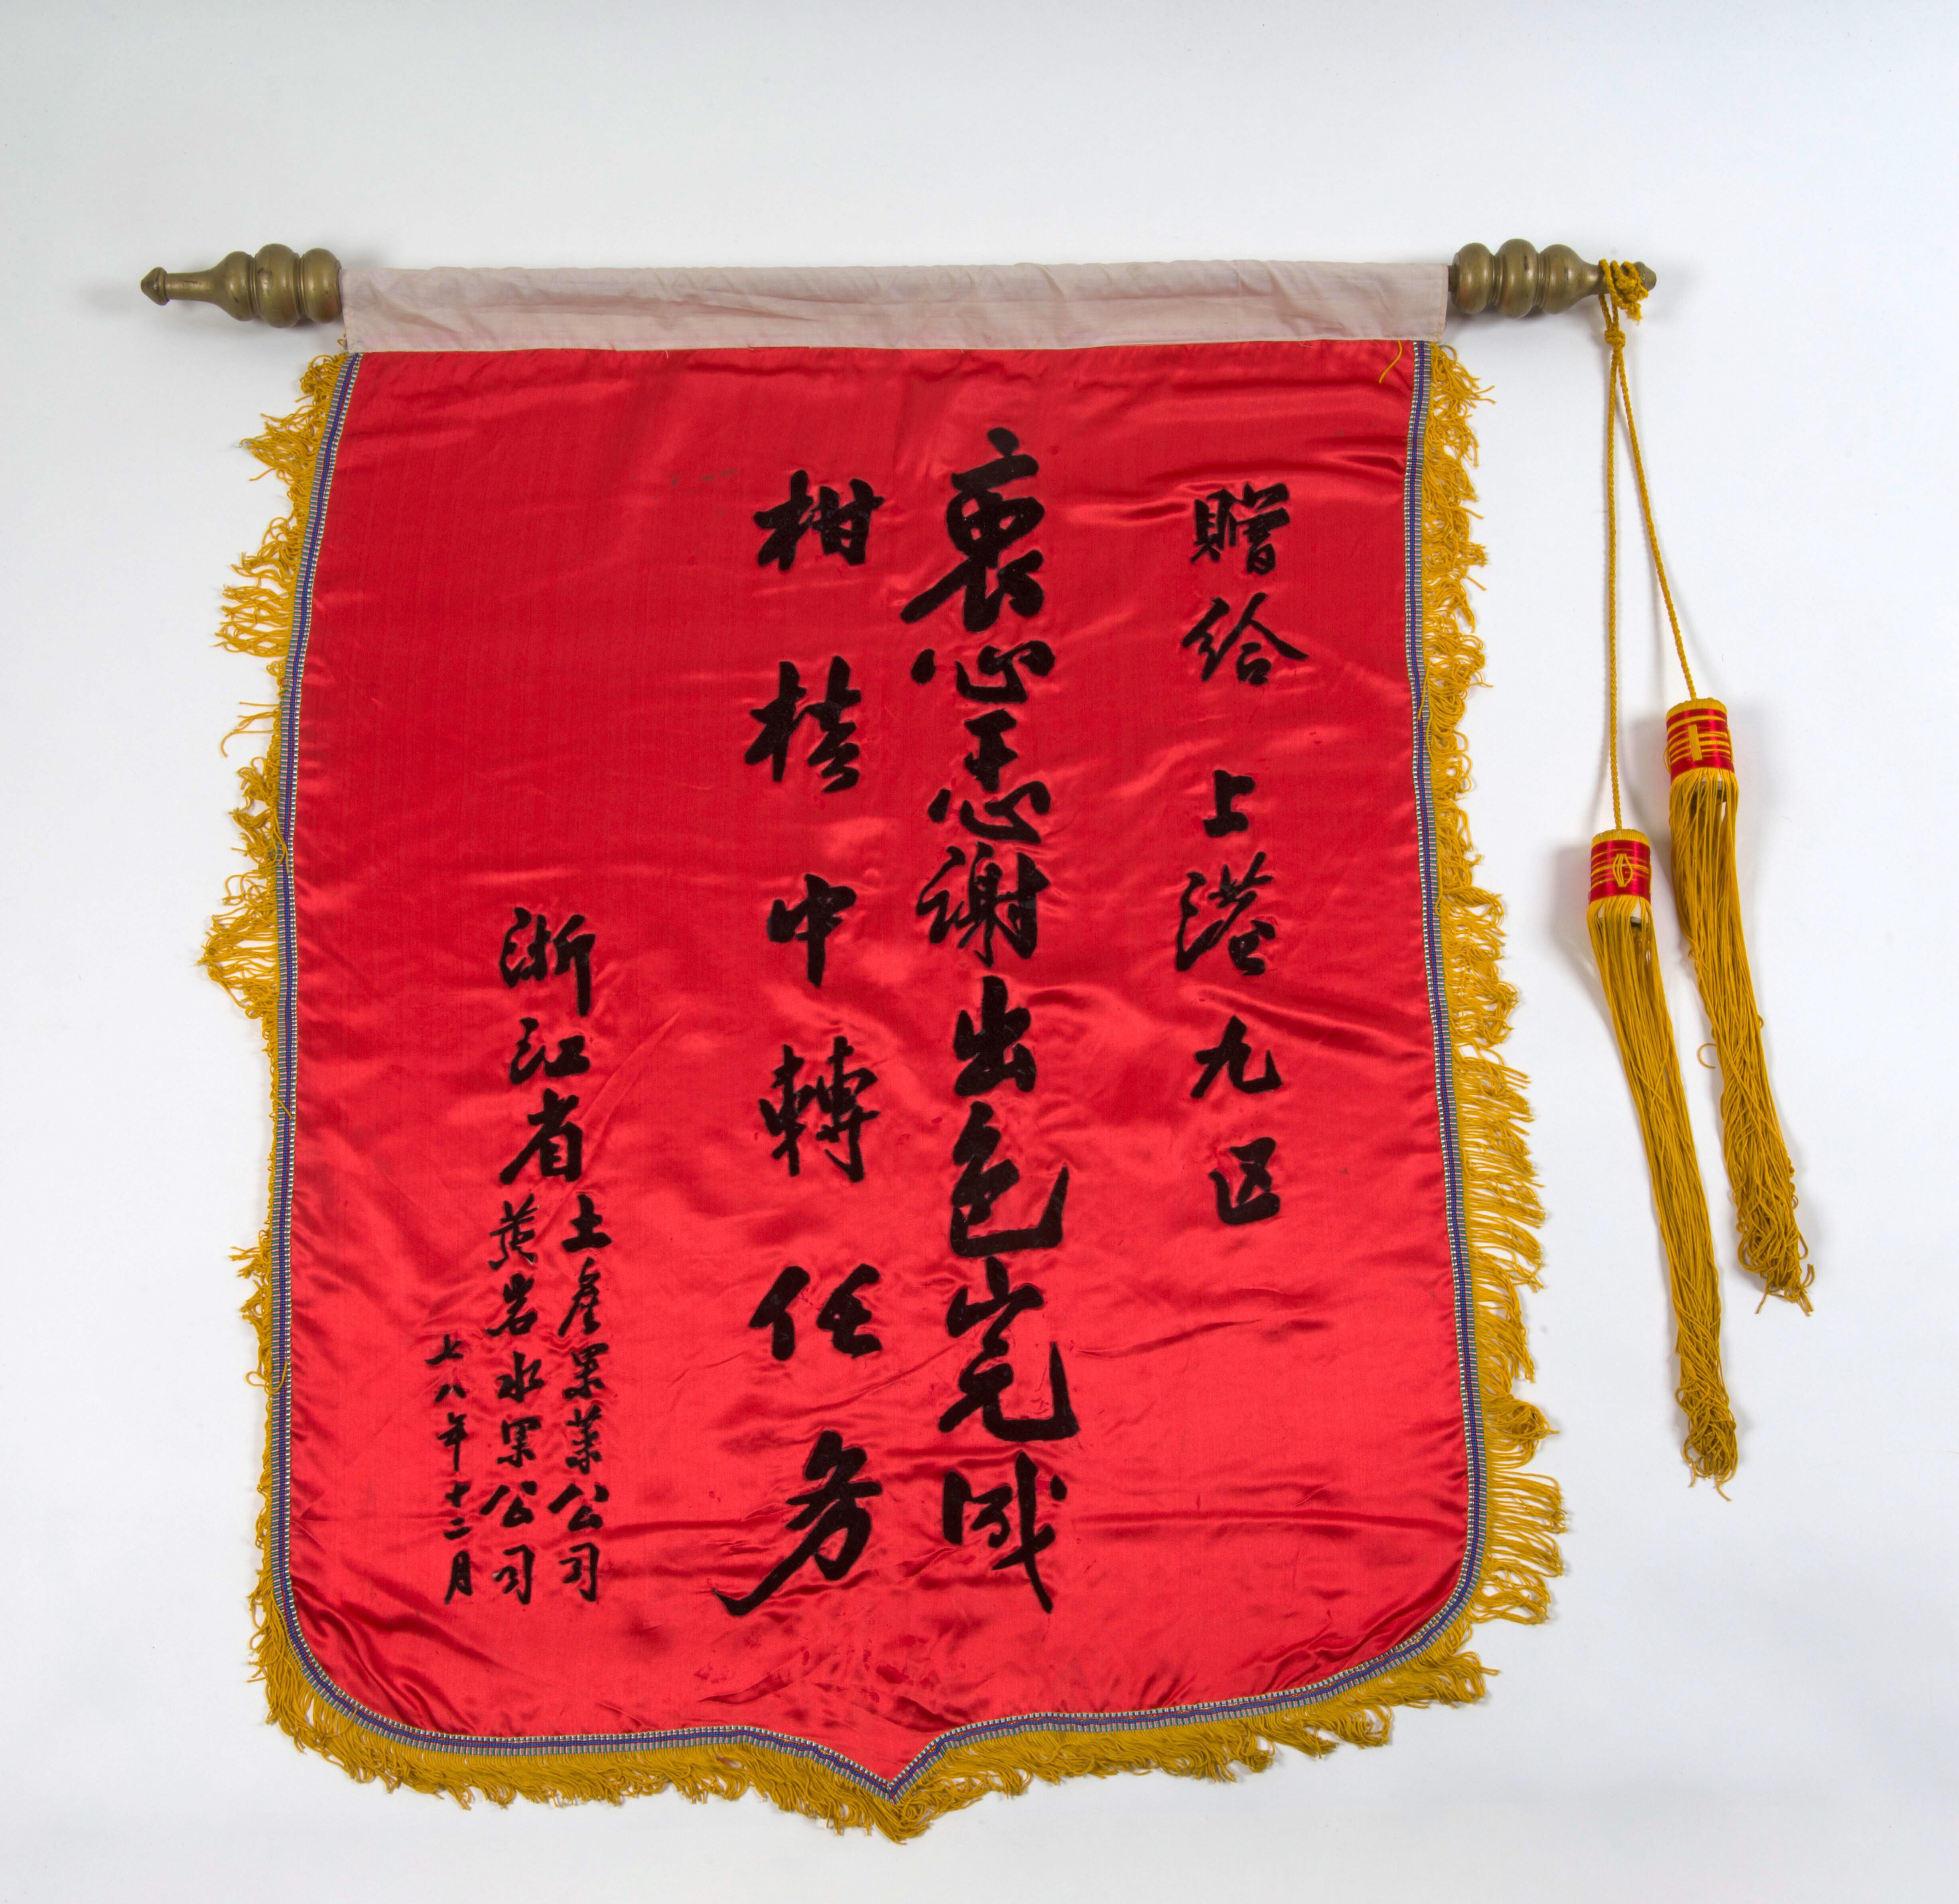 贈给 上港九区
衷心感謝出色完成
柑桔中轉任务
浙江省
土產果菜公司
黄岩水果公司
七八年十二月